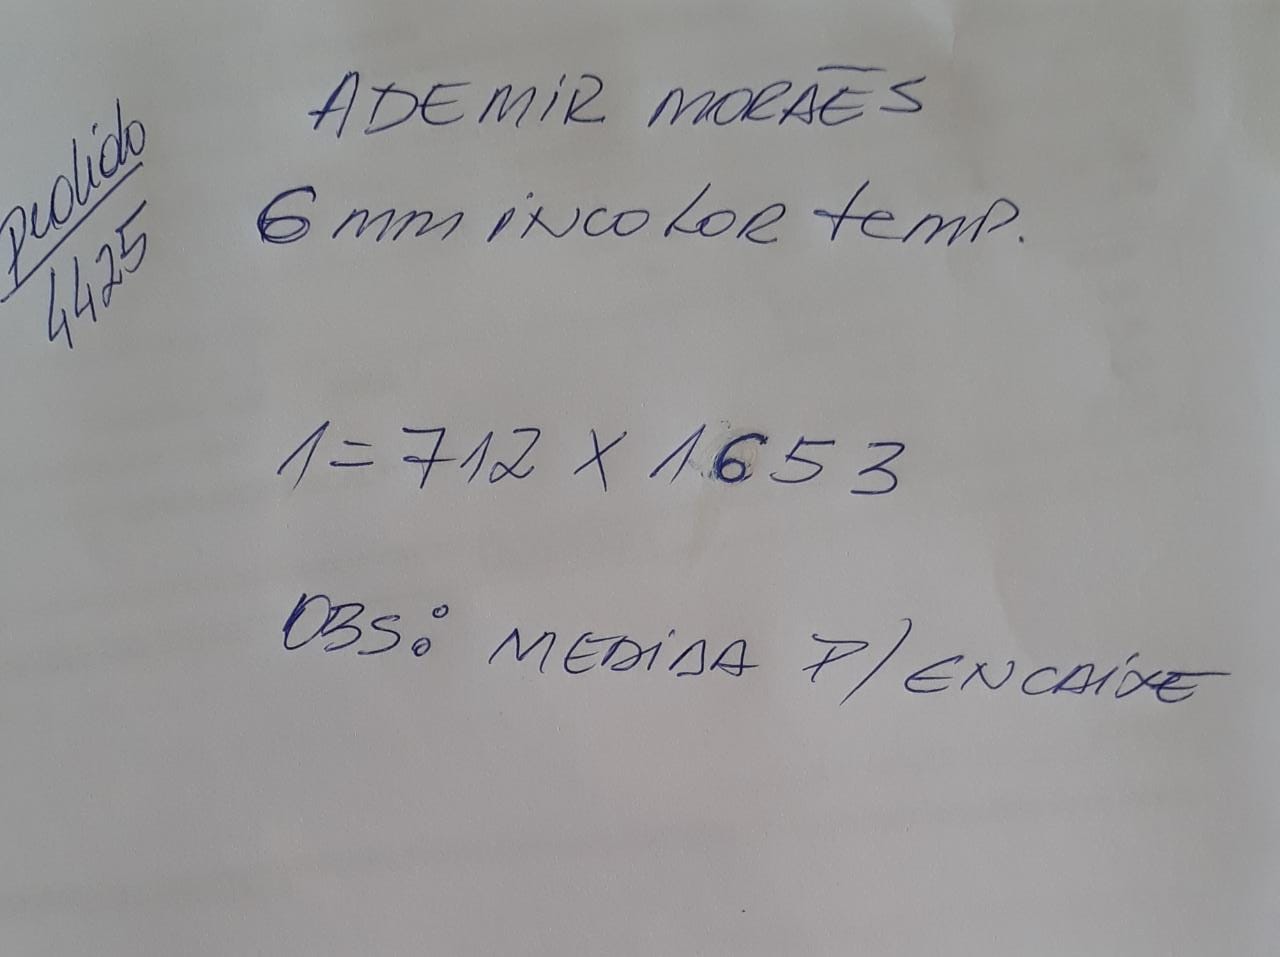 ADEMIR MORAES
pedido
4425
6mm incolor temp.
1=712 X 1653
OBS: MEDIDA P/ ENCAIXE